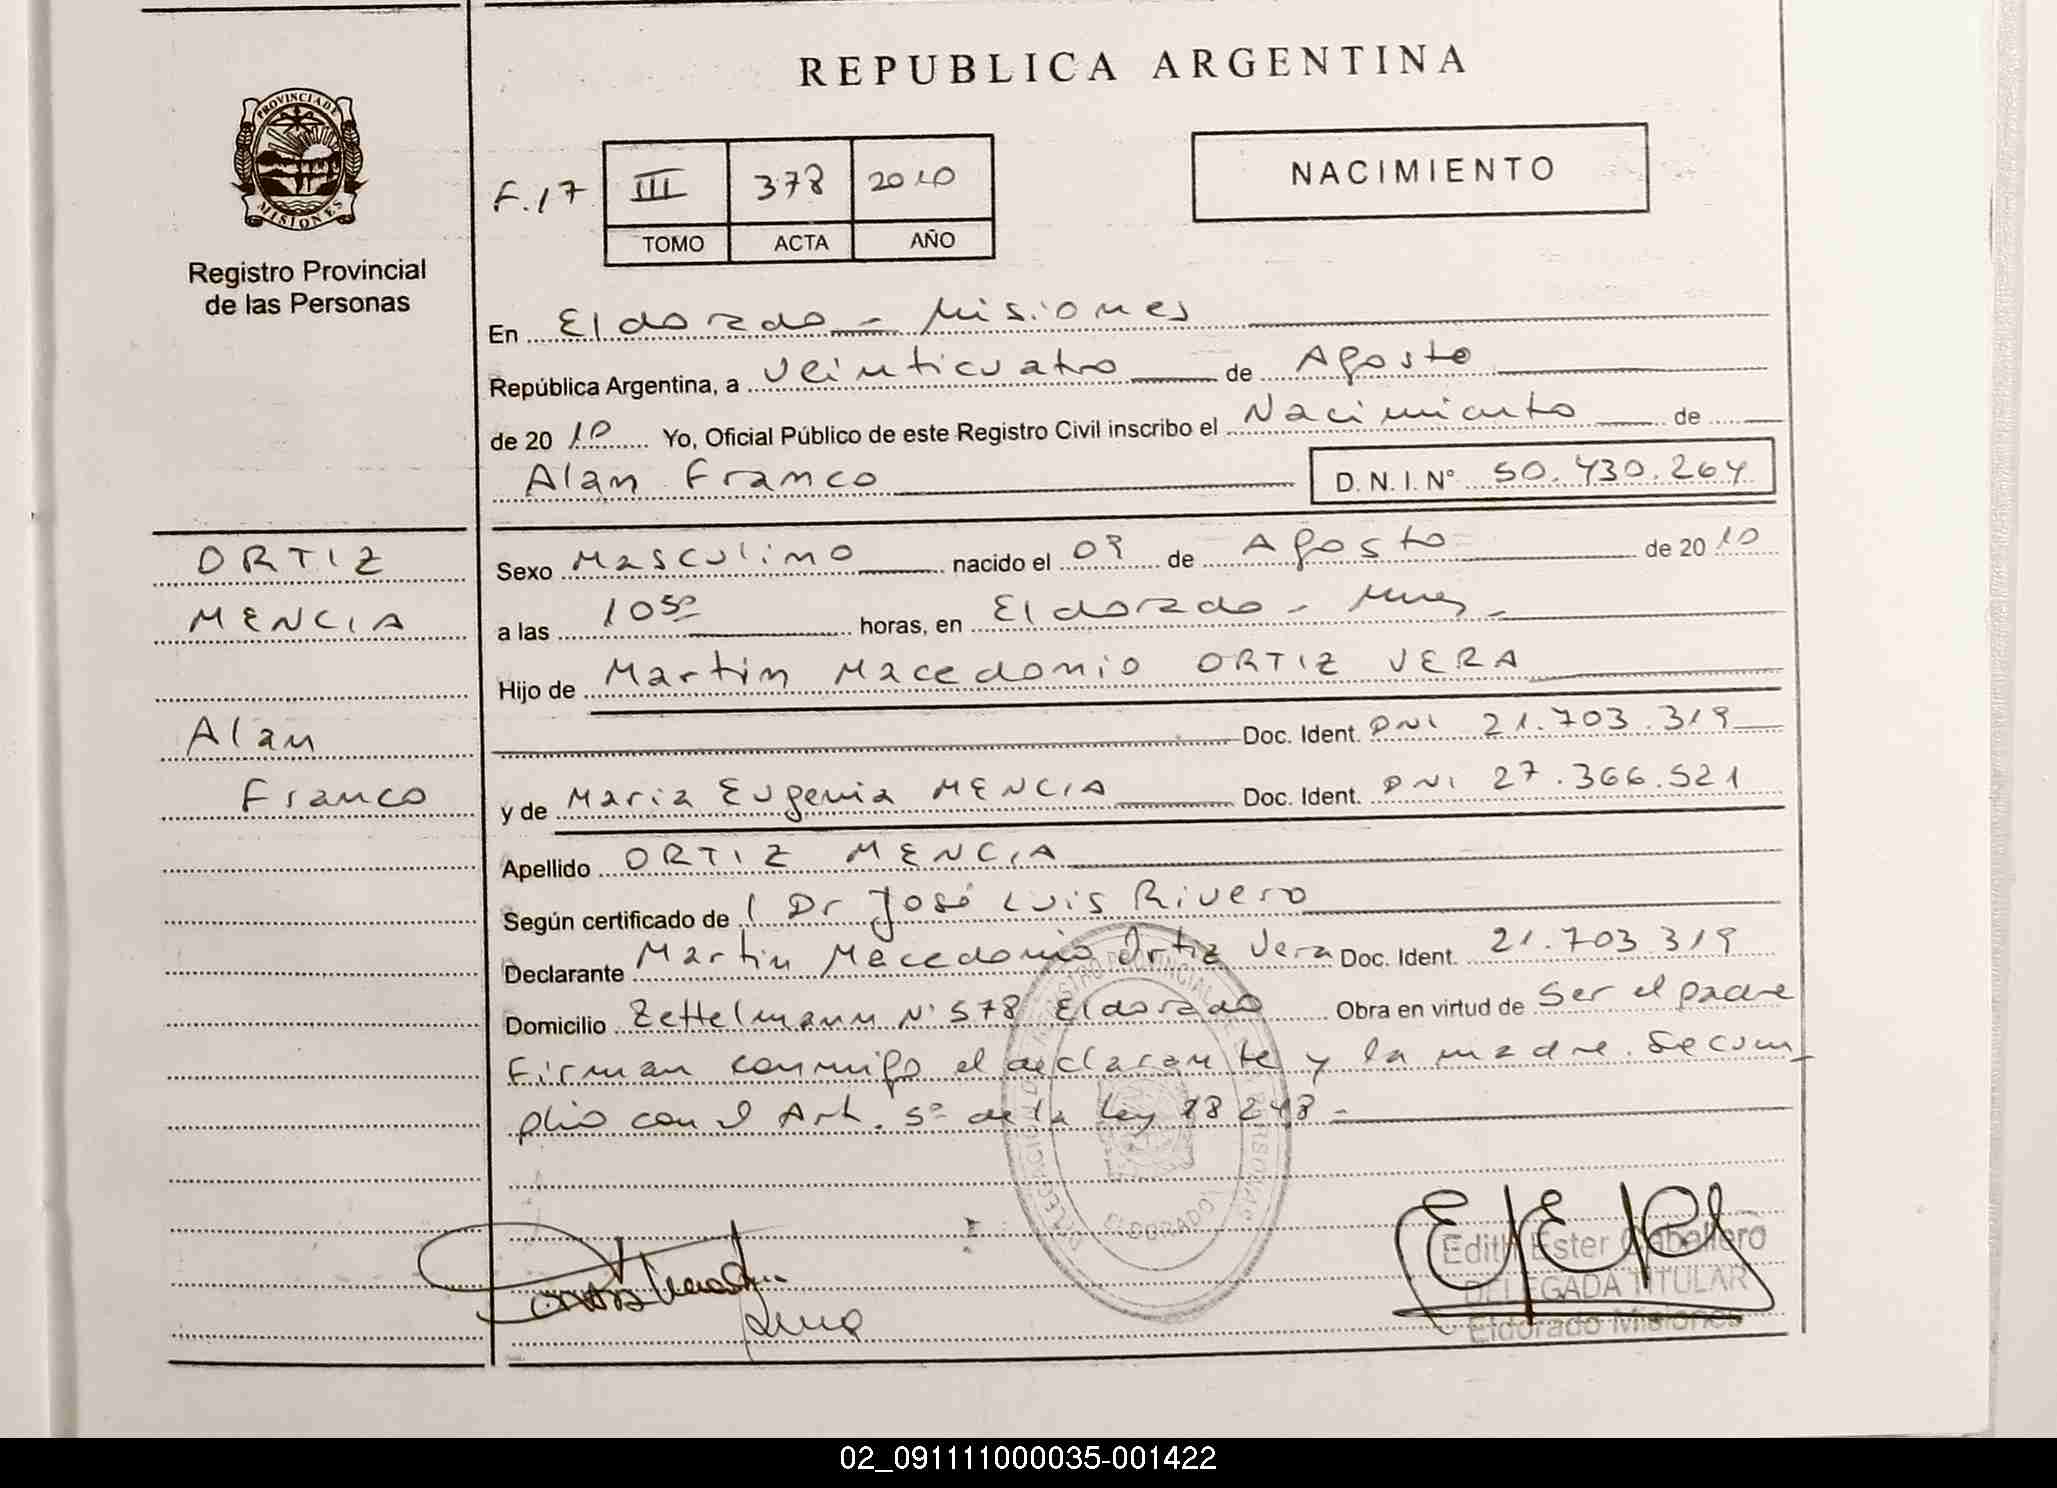 REPUBLICA ARGENTINA
PROVINCIA DE
MISIONES
Registro Provincial
de las Personas
F.17 III 378 2010
TOMO ACTA AÑO
NACIMIENTO
En Eldorado - Misiones
República Argentina, a veinticuatro de Agosto
de 2010 Yo, Oficial Público de este Registro Civil inscribo el Nacimiento de
Alan Franco D. N. I. N° 50.430.264
ORTIZ
MENCIA
Alan
Franco
Sexo Masculino nacido el 09 de Agosto de 2010
a las 10 50 horas, en Eldorado - Mnes -
Hijo de Martin Macedonio ORTIZ VERA
Doc. Ident. DNI 21.703.319
y de Maria Eugenia MENCIA Doc. Ident. DNI 27.366.521
Apellido ORTIZ MENCIA
Según certificado de Dr José Luis Rivero
Declarante Martin Macedonio Ortiz Vera Doc. Ident. 21.703.319
Domicilio Zettelmann N° 578 Eldorado Obra en virtud de ser el padre
Firman conmigo el declarante y la madre. Se cum-
plio con el Art. 5° de la Ley 18248 -
ELDORADO
Edith Ester Caballero
DELEGADA TITULAR
Eldorado Misiones
02_091111000035-001422